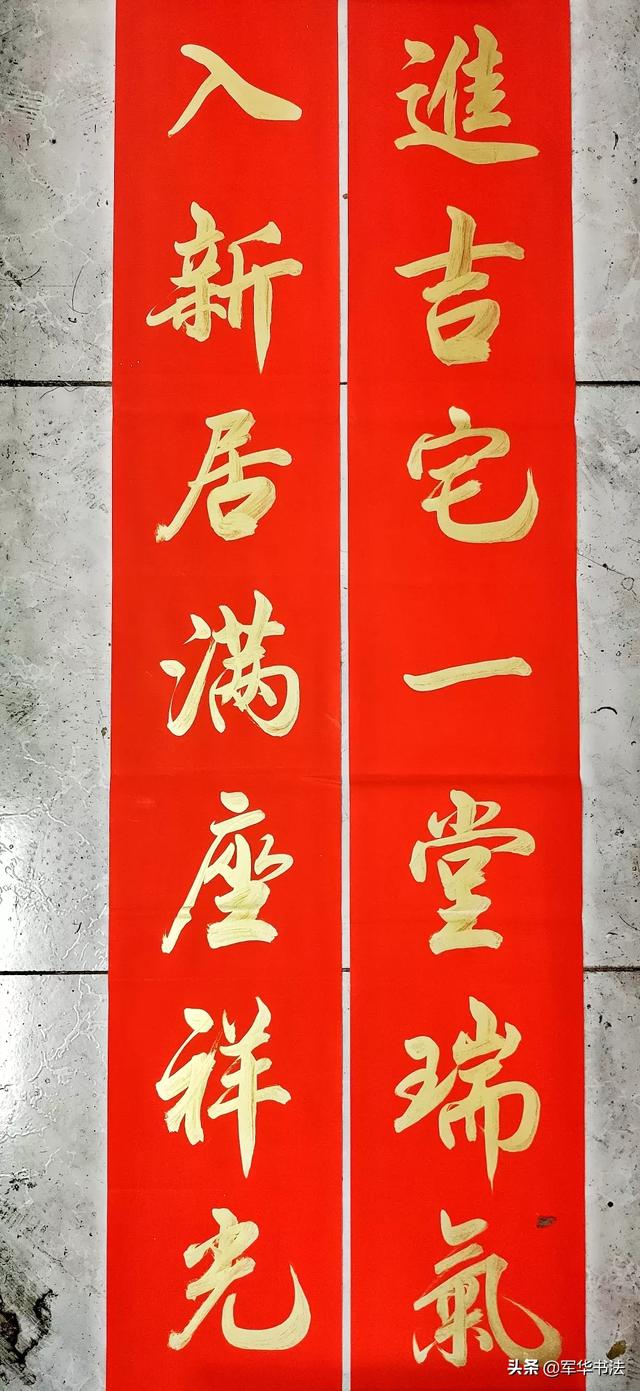 進吉宅一堂瑞氣
入新居满座祥光
头条@军华书法